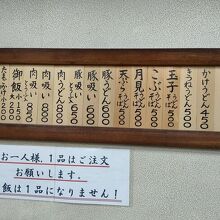 かけうどん 450
きつねうどん 500
玉子 うどん そば 500
こぶ うどん そば 500
月見 うどん そば 500
天ぷら うどん そば
豚うどん 600
豚吸い
肉うどん 800
肉吸い 800
肉吸い
御飯 大 250 小 200
お一人様、1品はご注文
お願いします。
飯は1品になりません！